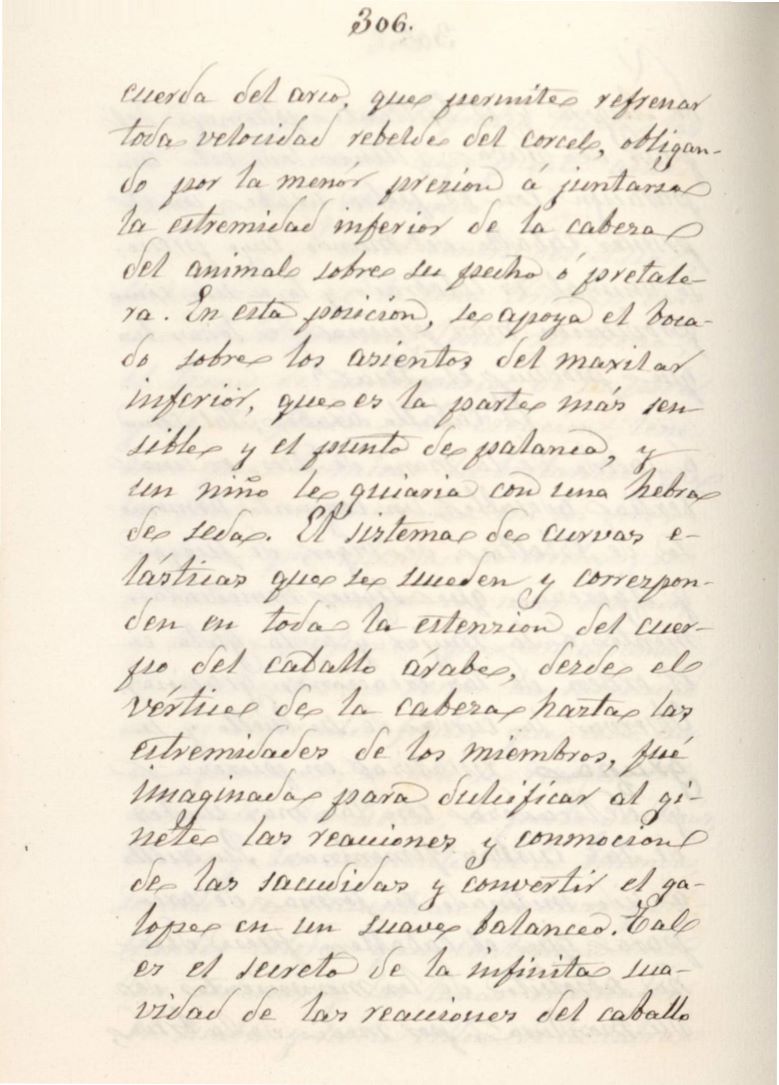 306.
cuerda del arco, que permite refrenar
toda velocidad rebelde del corcel, obligan-
do por la menór prezion á juntarse
la estremidad inferior de la cabeza
del animal sobre su pecho ó pretale-
ra. En esta posición, se apoya el boca-
do sobre los asientos del maxilar
inferiór, que es la parte más sen
sible y el punto de palanca, y
un niño le guiaria con una hebra
de seda. El sistema de curvas e-
lásticas que se sueden y correspon-
den en toda la estenzion del cuer-
po del caballo árabe, desde el
vértice de la cabeza hasta las
estremidades de los miembros, fué
imaginada para dulcificar al gi-
nete las reacciones y conmocion
de las sacudidas y convertir el ga-
lope en un suave balanceo. Tal
es el secreto de la infinita sua-
vidad de las reacciones del caballo